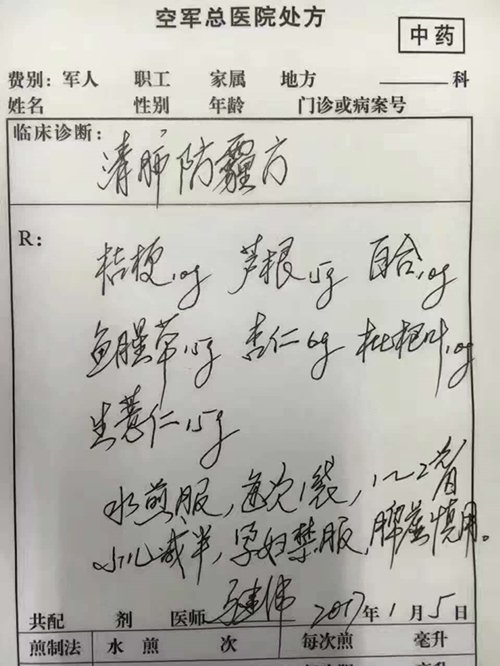 空军总医院处方
中药
费别：军人 职工 家属 地方 ＿＿科
姓名 性别 年龄 门诊或病案号
临床诊断：
清肺防霾方
R：
桔梗10g 芦根15g 百合10g
鱼腥草15g 杏仁6g 枇杷叶10g
生薏仁15g
水煎服，每次1袋，1～2
小儿减半，孕妇禁服，脾虚慎用。
共配 剂 医师 2017年1月5日
煎制法 水煎 次 每次煎 毫升